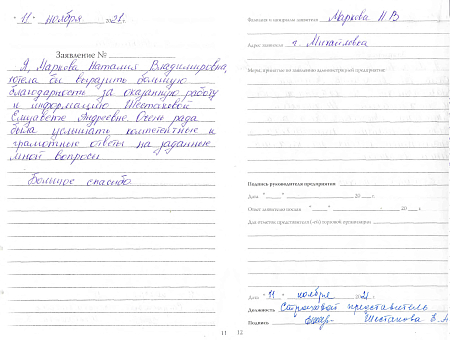 " 11 " ноября 2021 г.
Заявление №
Я, Маркова Наталия Владимировна,
хотела бы выразить большую
благодарность за оказанную работу
и информацию Шестаковой
Елизавете Андреевне. Очень рада
была услышать компетентные и
грамотные ответы на заданные
мной вопросы
Большое спасибо
11
Фамилия и инициалы заявителя Маркова Н В
Адрес заявителя г. Михайловка
Меры, принятые по заявлению администрацией предприятия:
Подпись руководителя предприятия
Дата " " 20 г.
Ответ заявителю послан " " 20 г.
Для отметок представителя (-ей) торговой организации
Дата " 11 " ноября 2021
Должность Страховой представитель
Подпись Шестакова Е. А
12